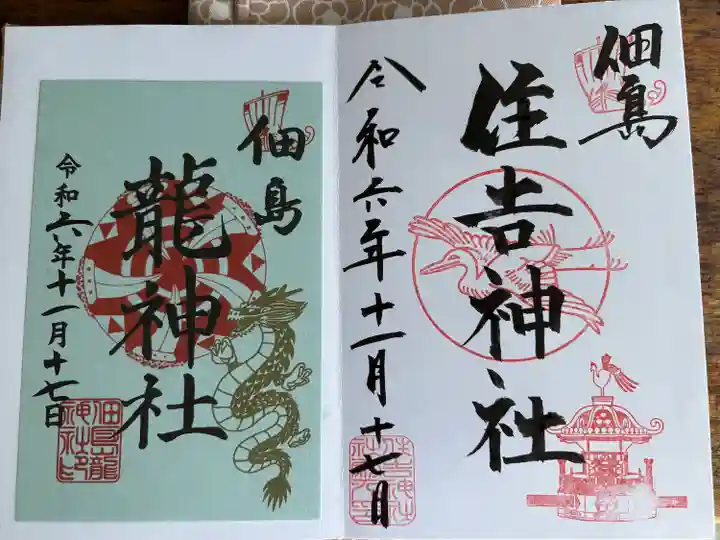 佃島
住吉神社
令和六年十一月十七日
佃島
龍神社
令和六年十一月十七日
佃島龍
神社印